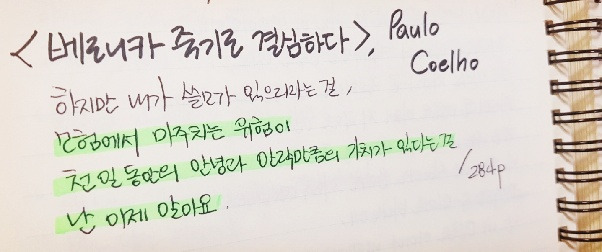 <베로니카 죽기로 결심하다>, Paulo Coelho
하지만 내가 쓸모가 있으리라는 걸,
모험에서 마주치는 위험이
천 일 동안의 안녕과 안락만큼의 가치가 있다는 걸
난 이제 알아요.
/284p